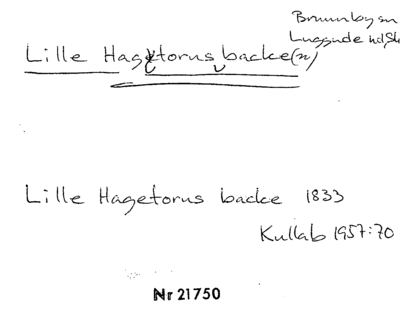 Brunnby sn
Luggude hd, Sk
Lille Hagetorus backe(n)
Lille Hagetorus backe 1833
Kullab 1957:70
Nr 21750